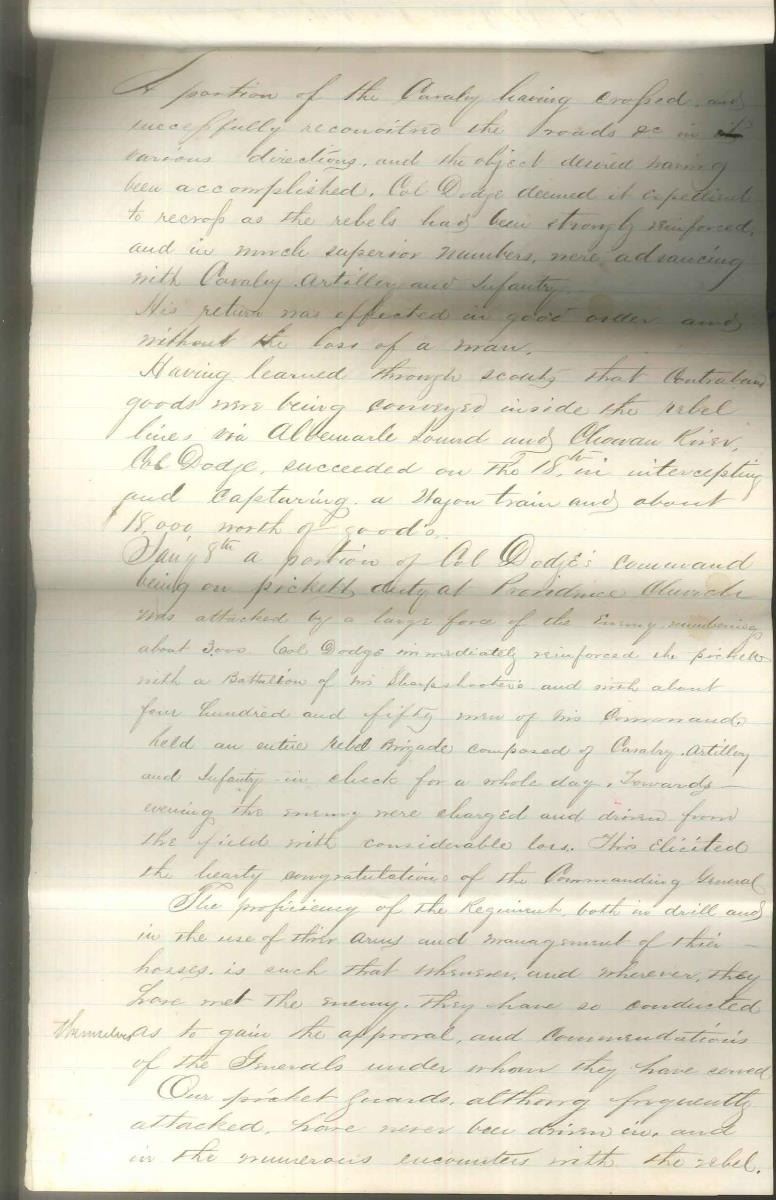 A portion of the Cavalry having crossed, and
successfully reconoitred the roads &c in its
various directions, and the object desired having
been accomplished, Col Dodge deemed it expedient
to recross as the rebels had been strongly reinforced,
and in much superior numbers, were advancing
with Cavalry Artillery and Infantry.
His return was effected in good order and
without the loss of a man.
Having learned through scouts that Contraband
goods were being conveyed inside the rebel
lines via Albemarle Sound and Chowan River,
Col Dodge, succeeded on the 18th in intercepting
and capturing a Wagon train and about
18,000 worth of goods.
Jan'y 8th a portion of Col Dodge's command
being on pickett duty at Providence Church
was attacked by a large force of the Enemy numbering
about 3000 Col Dodge immediately reinforced the pickett
with a Battalion of his Sharpshooters and with about
four hundred and fifty men of his Command,
held an entire rebel Brigade composed of Cavalry Artillery
and Infantry in check for a whole day. Towards
evening the enemy were charged and driven from
the field with considerable loss. This elicited
the hearty congratulations of the Commanding General
The proficiency of the Regiment, both in drill and
in the use of their arms and management of their
horses, is such that whenever, and wherever, they
have met the enemy, they have so conducted
themselves as to gain the approval, and commendations
of the Generals under whom they have served
Our picket guards, although frequently
attacked, have never been driven in, and
in the numerous encounters with the rebel.